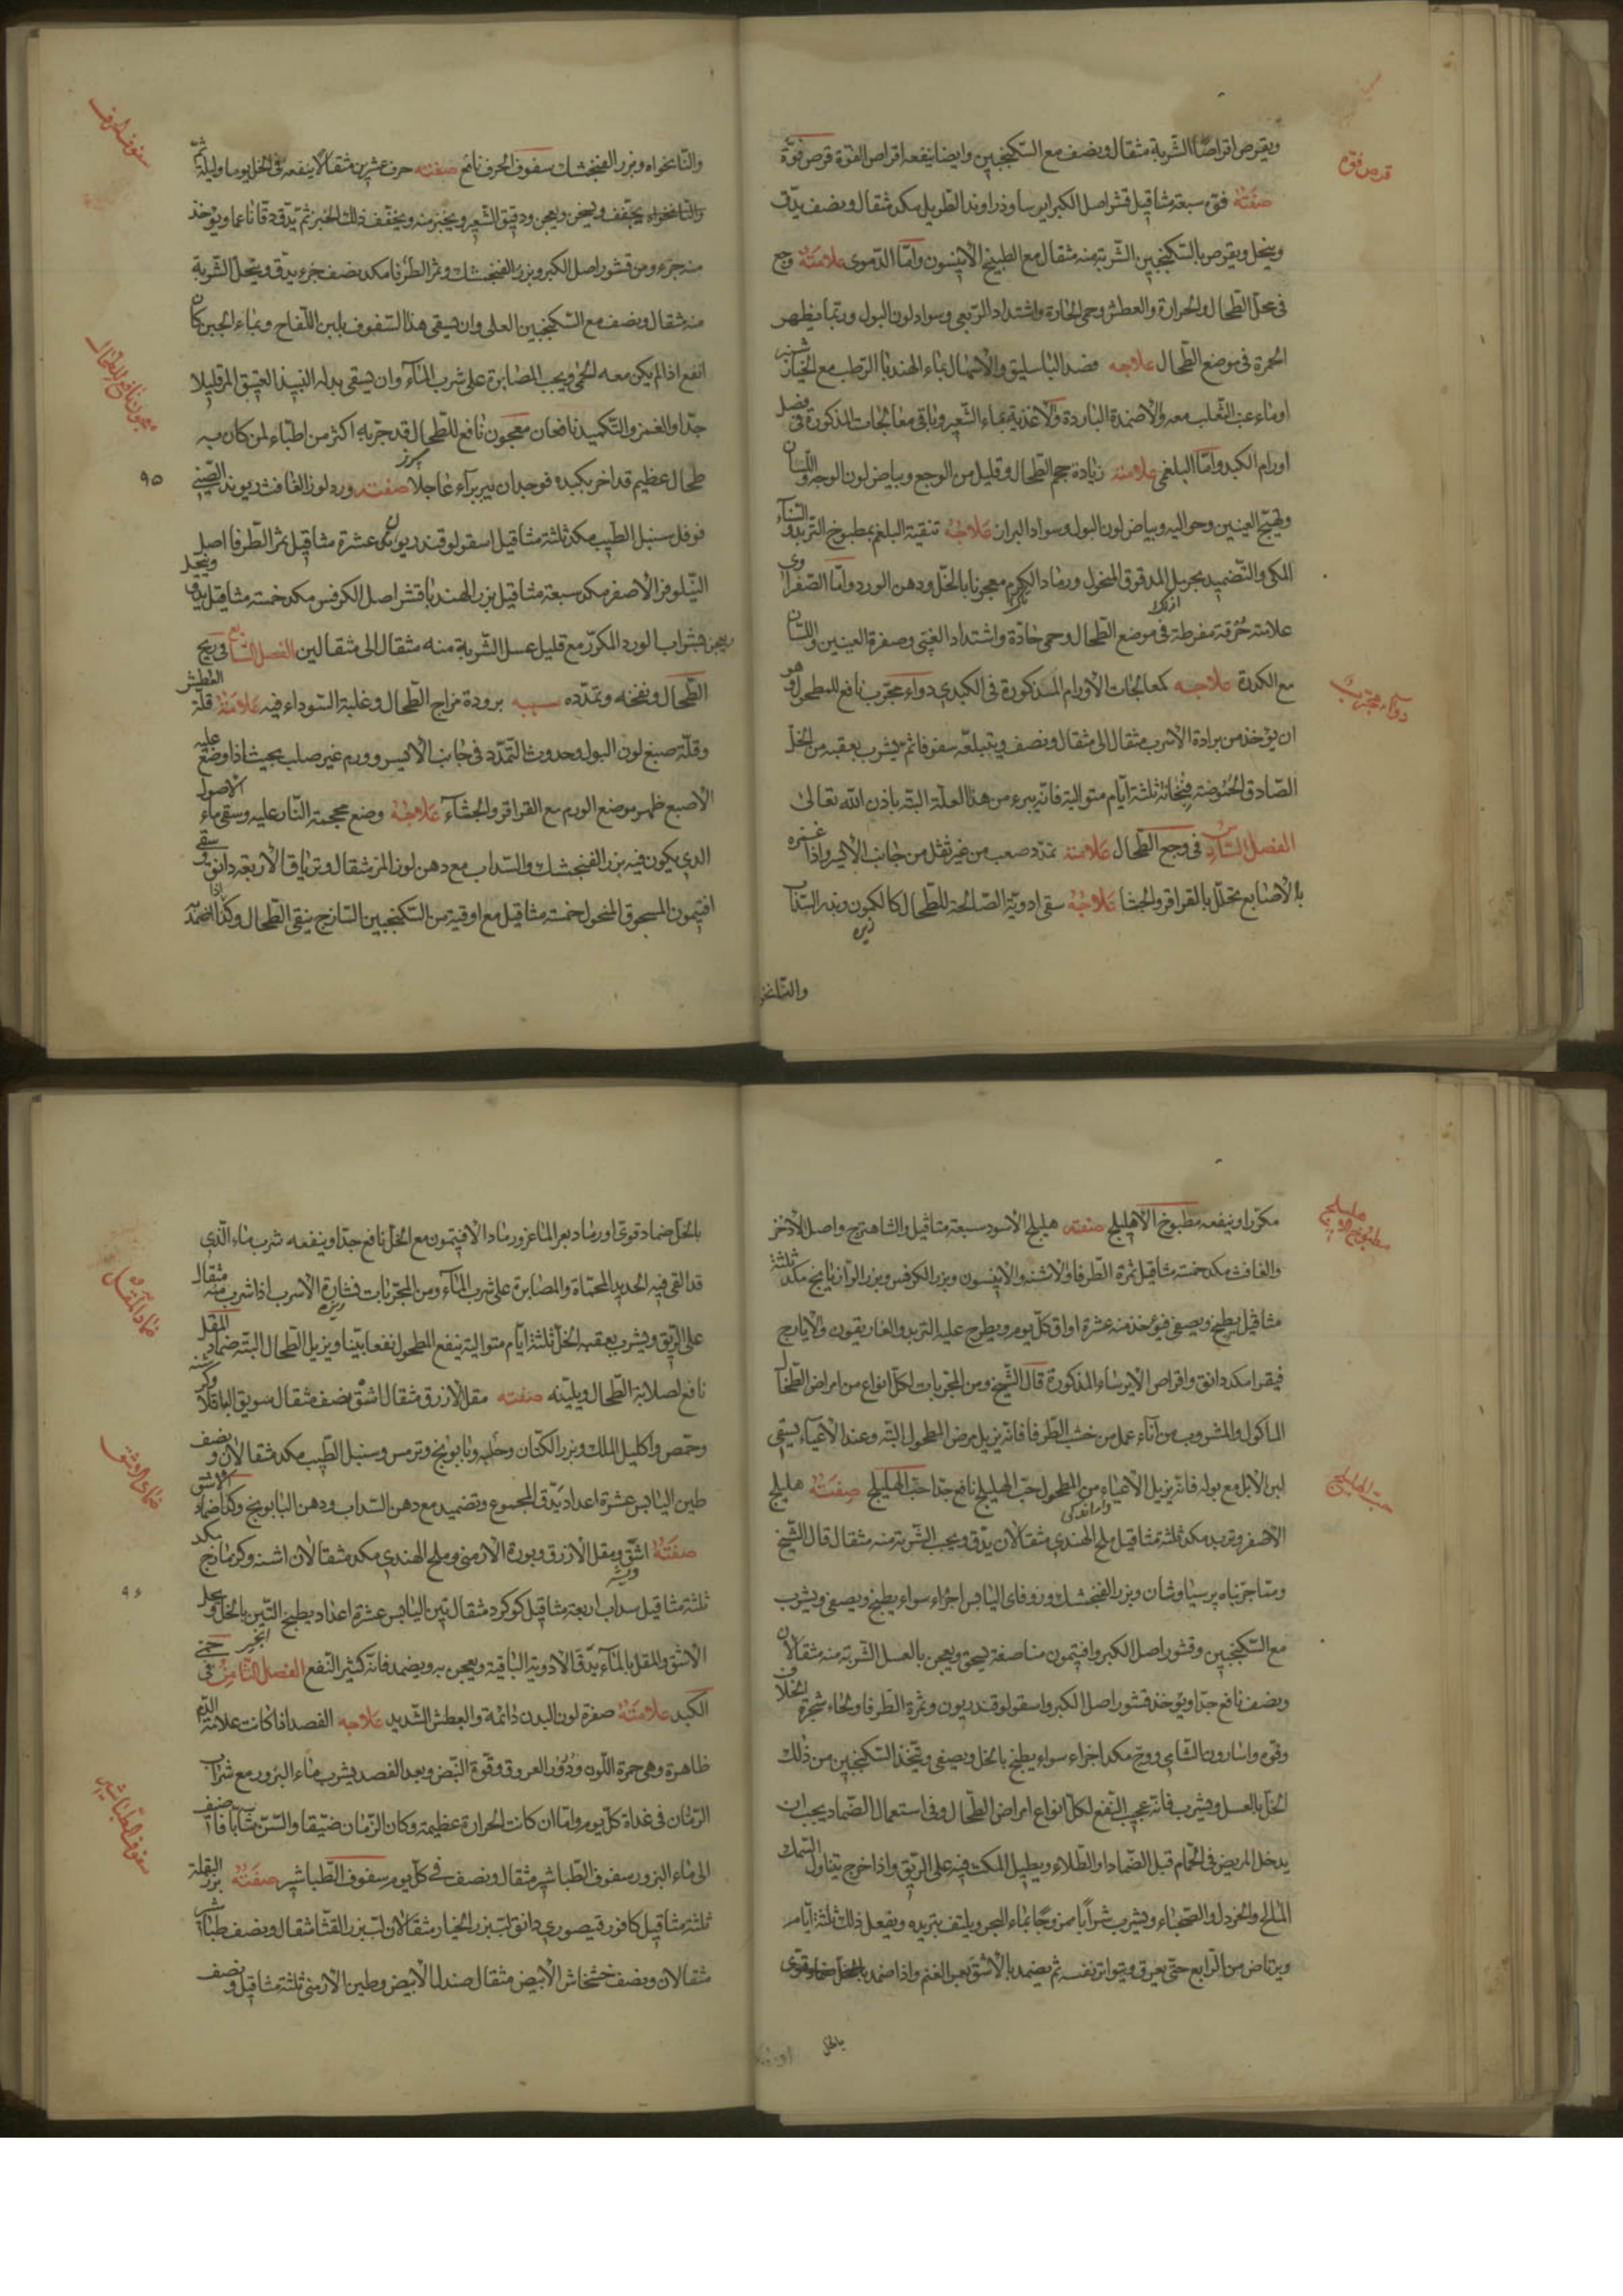 ويقرص اقراصا الشربة مثقال ونصف مع السكنجبين وايضا ينفعه اقراص الفوّة قرص فوّة
قرص فوّه
صفته فوّة سبعة مثاقيل قشر اصل الكبر ايرسا وزراوند الطويل مكد مثقال ونصف يدقّ
وينخل ويقرص بالسكنجبين الشربة منه مثقال مع الطبيخ الانيسون وامّا الدموى علامته وجع
فى محل الطحال والحرارة والعطش وحمى الحارة واشتداد الربعى وسواد لون البول وربما يظهر
الحمرة فى موضع الطحال علاجه فصد الباسليق والاسهال بماء الهندبا الرطب مع الخيار شنبر
او ماء عنب الثعلب معه والاضمدة الباردة والاغذية بماء الشعير وباقى معالجات المذكورة فى فصل
اورام الكبد وامّا البلغمى علامته زيادة حجم الطحال وقليل من الوجع وبياض لون الوجه واللسان
وتهيج العينين وحواليه وبياض لون البول وسواد البراز علاجه تنقية البلغم بمطبوخ التربد والسنآء
المكى والتضميد بحرمل المدقوق المنخول ورماد الكرم معجونا بالخل ودهن الورد وامّا الصفراوى
علامته حرقة مفرطة فى موضع الطحال وحمى حادّة واشتداد الغبّى وصفرة العينين واللسان
مع الكدرة علاجه كمعالجات الاورام المذكورة فى الكبد دواء مجرّب نافع للمطحول وهو
دوآء مجرّب
ان يؤخذ من برادة الاسرب مثقال الى مثقال ونصف ويتبلعه سفوفا ثم يشرب بعقبه من الخل
الصادق الحموضة فنجانة ثلثة ايام متوالية فانه يبرء من هذا العلّة البتّه باذن الله تعالى
الفصل السادس فى وجع الطحال علامته تمدد صعب من غير ثقل من جانب الايسر واذا غمزه
بالاصابع تحلّل بالقراقر والجشا علاجه سقى ادوية الصالحة للطحال كالكمون وبذر السداب
زيره
والنانخو
والنانخواه وبزر الفنجنشك سفوف الحرف نافع صفته حرف عشرين مثقالا ينقعه فى الخل يوما وليلة ثمّ
سفوف الحرف
يجفف ويسحق ويعجن ودقيق الشعير ويخبز منه ويجفف ذلك الخبز ثم يدقّ دقّا ناعما ويؤخذ
منه جزء ومن قشور اصل الكبر وبزر الفنجنشك وثمر الطرفا مكد نصف جزء يدقّ وينخل الشربة
منه مثقال ونصف مع السكنجبين العسلى وان يسقى هذا السفوف بلبن اللقاح وبماء الجبن كان
انفع اذا لم يكن معه الحمى ويجب المصابرة على شرب المآء وان يسقى بدله النبيذ العتيق المر قليلا
جدّا والغمز والتكميد نافعان معجون نافع للطحال قد جربه اكثر من اطبّاء لمن كان به
معجون نافع للطحال
طحال عظيم قد اضر بكبده فوجد ان يبرء برآء عاجلا صفته ورد لوز الغافث ريوند الصينى
٩٥
فوفل سنبل الطيب مكد ثلثة مثاقيل اسقولوقندريون عشرة مثاقيل ثمر الطرفا اصل
النيلوفر الاصفر مكد سبعة مثاقيل بزر الهندبا قشر اصل الكرفس مكد خمسة مثاقيل يدق وينخل
ويعجن بشراب الورد المكرّر مع قليل عسل الشربة منه مثقال الى مثقالين الفصل السابع فى ريح
الطحال ونفخه وتمدّده سببه برودة مزاج الطحال وغلبة السوداء فيه علامته قلّة العطش
وقلّة صبغ لون البول وحدوث التمدّد فى جانب الايسر وورم غير صلب بحيث اذا وضع عليه
الاصبع ظهر موضع الورم مع القراقر والجشآء علاجه وضع محجمة النار عليه وسقى ماء الاصول
الذى يكون فيه بزر الفنجنشك والسداب مع دهن لوز المر مثقال وترياق الاربعة دانق وسقى
افتيمون المسحوق المنخول خمسة مثاقيل مع اوقية من السكنجبين الساذج ينقى الطحال وكذا اذا ضمّد
مكرّرا وينفعه مطبوخ الاهليلج صفته هليلج الاسود سبعة مثاقيل والشاهترج واصل الاذخر
مطبوخ الاهليلج
والغافث مكد خمسة مثاقيل ثمرة الطرفا والاشنه والانيسون وبزر الكرفس وبزر الرازيانج مكد ثلثة
مثاقيل يطبخ ويصفى فيؤخذ منه عشرة اواق كلّ يوم ويطرح عليه التربد والغاريقون والايارج
فيقرا مكد دانق واقراص الايرساء المذكورة قال الشيخ ومن المجربات لكلّ انواع من امراض الطحال
الماكول والمشروب من آناء عمل من خشب الطرفا فانّه يزيل مرض المطحول البتّه وعند الاعياء يسقى
لبن الابل مع بوله فانّه يزيل الاعياء من المطحول حبّ الهليلج نافع جدّا حبّ الهليلج صفته هليلج
حبّ الهليلج
الاصفر وتربد مكد ثلثة مثاقيل ملح الهندى مثقالان يدقّ ويحبب الشربة منه مثقال قال الشيخ
وممّا جربناه پرسياوشان وبزر الفنجنشك وزوفاى اليابس اجزاء سواء يطبخ ويصفى ويشرب
مع السكنجبين وقشور اصل الكبر وافتيمون مناصفة يسحق ويعجن بالعسل الشربة منه مثقالان
ونصف نافع جدّا ويؤخذ قشور اصل الكبر واسقولوقندريون وثمرة الطرفا ولحاء شجرة الخلاف
وفوه واسارون الشامى ووجّ مكد اجزاء سواء يطبخ بالخل ويصفى ويتّخذ السكنجبين من ذلك
الخلّ بالعسل ويشرب فانّه عجيب النفع لكلّ انواع امراض الطحال وفى استعمال الضماد يجب ان
يدخل المريض فى الحمّام قبل الضماد او الطلاء ويطيل المكث فيه على الريق واذا خرج يتناول السمك
المالح والخردل والصحناء ويشرب شرابا ممزوجا بماء البحر ويلتف بتربده ويفعل ذلك ثلثة ايام
ويرتاض من الرابع حتى يعرق ويتواتر نفسه ثم يضمد بالاشق بعر الغنم واذا ضمد
بالخل
بالخل ضماد قوى او رماد بعر الماعز ورماد الافتيمون مع الخل نافع جدّا وينفعه شرب ماء الذى
قد القى فيه الحديد المحماة والمصابرة على شرب المآء ومن المجربات فشارة الاسرب اذا شرب منه مثقال
على الريق ويشرب بعقبه الخلّ ثلثة ايام متوالية ينفع المطحول نفعا بيّنا ويزيل الطحال البتّه ضماد المقل
ضماد المقل
نافع لصلابة الطحال ويلينه صفته مقل الازرق مثقال اشق نصف مثقال سويق الباقلا
وحمص واكليل الملك وبزر الكتان وحلبه وبابونج وترمس وسنبل الطيب مكد مثقالان ونصف
طين اليابس عشرة اعداد يدّق المجموع وتضميد مع دهن السداب ودهن البابونج وكذا ضماد الاشق
ضماد الاشق
صفته اشقّ ومقل الازرق وبورة الارمنى وملح الهندى مكد مثقالان اشنه وكزمازج مكد
ثلثة مثاقيل سداب اربعة مثاقيل كوكرد مثقال تين اليابس عشرة اعداد يطبخ التين بالخل ويحلّ
٩٦
الاشق والمقل بالمآء يدقّ الادوية الباقية ويعجن به ويضمد فانّه كثير النفع الفصل الثامن فى حمى
الكبد علامته صفرة لون البدن دائمة والعطش الشديد علاجه الفصد اذا كانت علامة الدم
ظاهرة وهى حمرة اللون ودرور العروق وقوّة النبض وبعد الفصد يشرب ماء البزور مع شراب
الرمان فى غداة كل يوم وامّا ان كانت الحرارة عظيمة وكان الزمان ضيّقا والسن شابّا
الى ماء البزور سفوف الطباشير مثقال ونصف فى كل يوم سفوف الطباشير صفته بزر البقلة
سفوف الطباشير
ثلثة مثاقيل كافور قيصورى دانق لبّ بزر الخيار مثقالان لبّ بزر القثا مثقال ونصف طباشير
مثقالان ونصف خشخاش الابيض مثقال صندل الابيض وطين الارمنى ثلثة مثاقيل ونصف